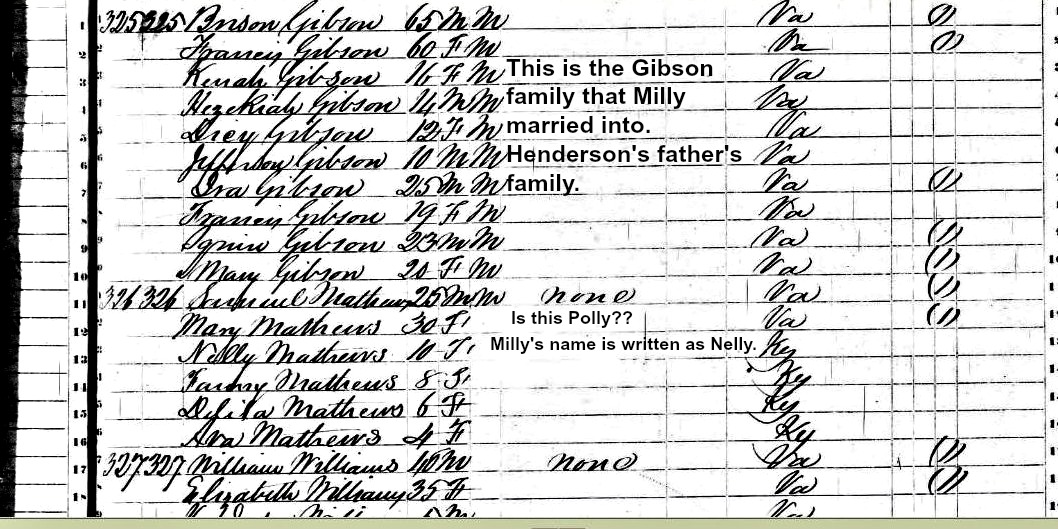 1 325 325 Bryson Gibson 65 M M Va 1
2 Francis Gibson 60 F M Va 1
3 Keziah Gibson 16 F M This is the Gibson Va
4 Hezekiah Gibson 14 M M family that Milly Va
5 Dicey Gibson 12 F M married into. Va
6 Jefferson Gibson 10 M M Henderson's father's Va
7 Ira Gibson 25 M M family. Va 1
8 Francis Gibson 19 F M Va
9 Squire Gibson 23 M M Va 1
10 Mary Gibson 20 F M Va 1
11 326 326 Samuel Mathews 25 M M none Va 1
Is this Polly??
12 Mary Mathews 30 F Va 1
Milly's name is written as Nelly.
13 Nelly Mathews 10 F Ky
14 Fanny Mathews 8 F Ky
15 Mathews 6 F Ky
16 Mathews 4 F Ky
17 327 327 William Williams 40 M none Va 1
18 Elizabeth Williams 35 F Va 1